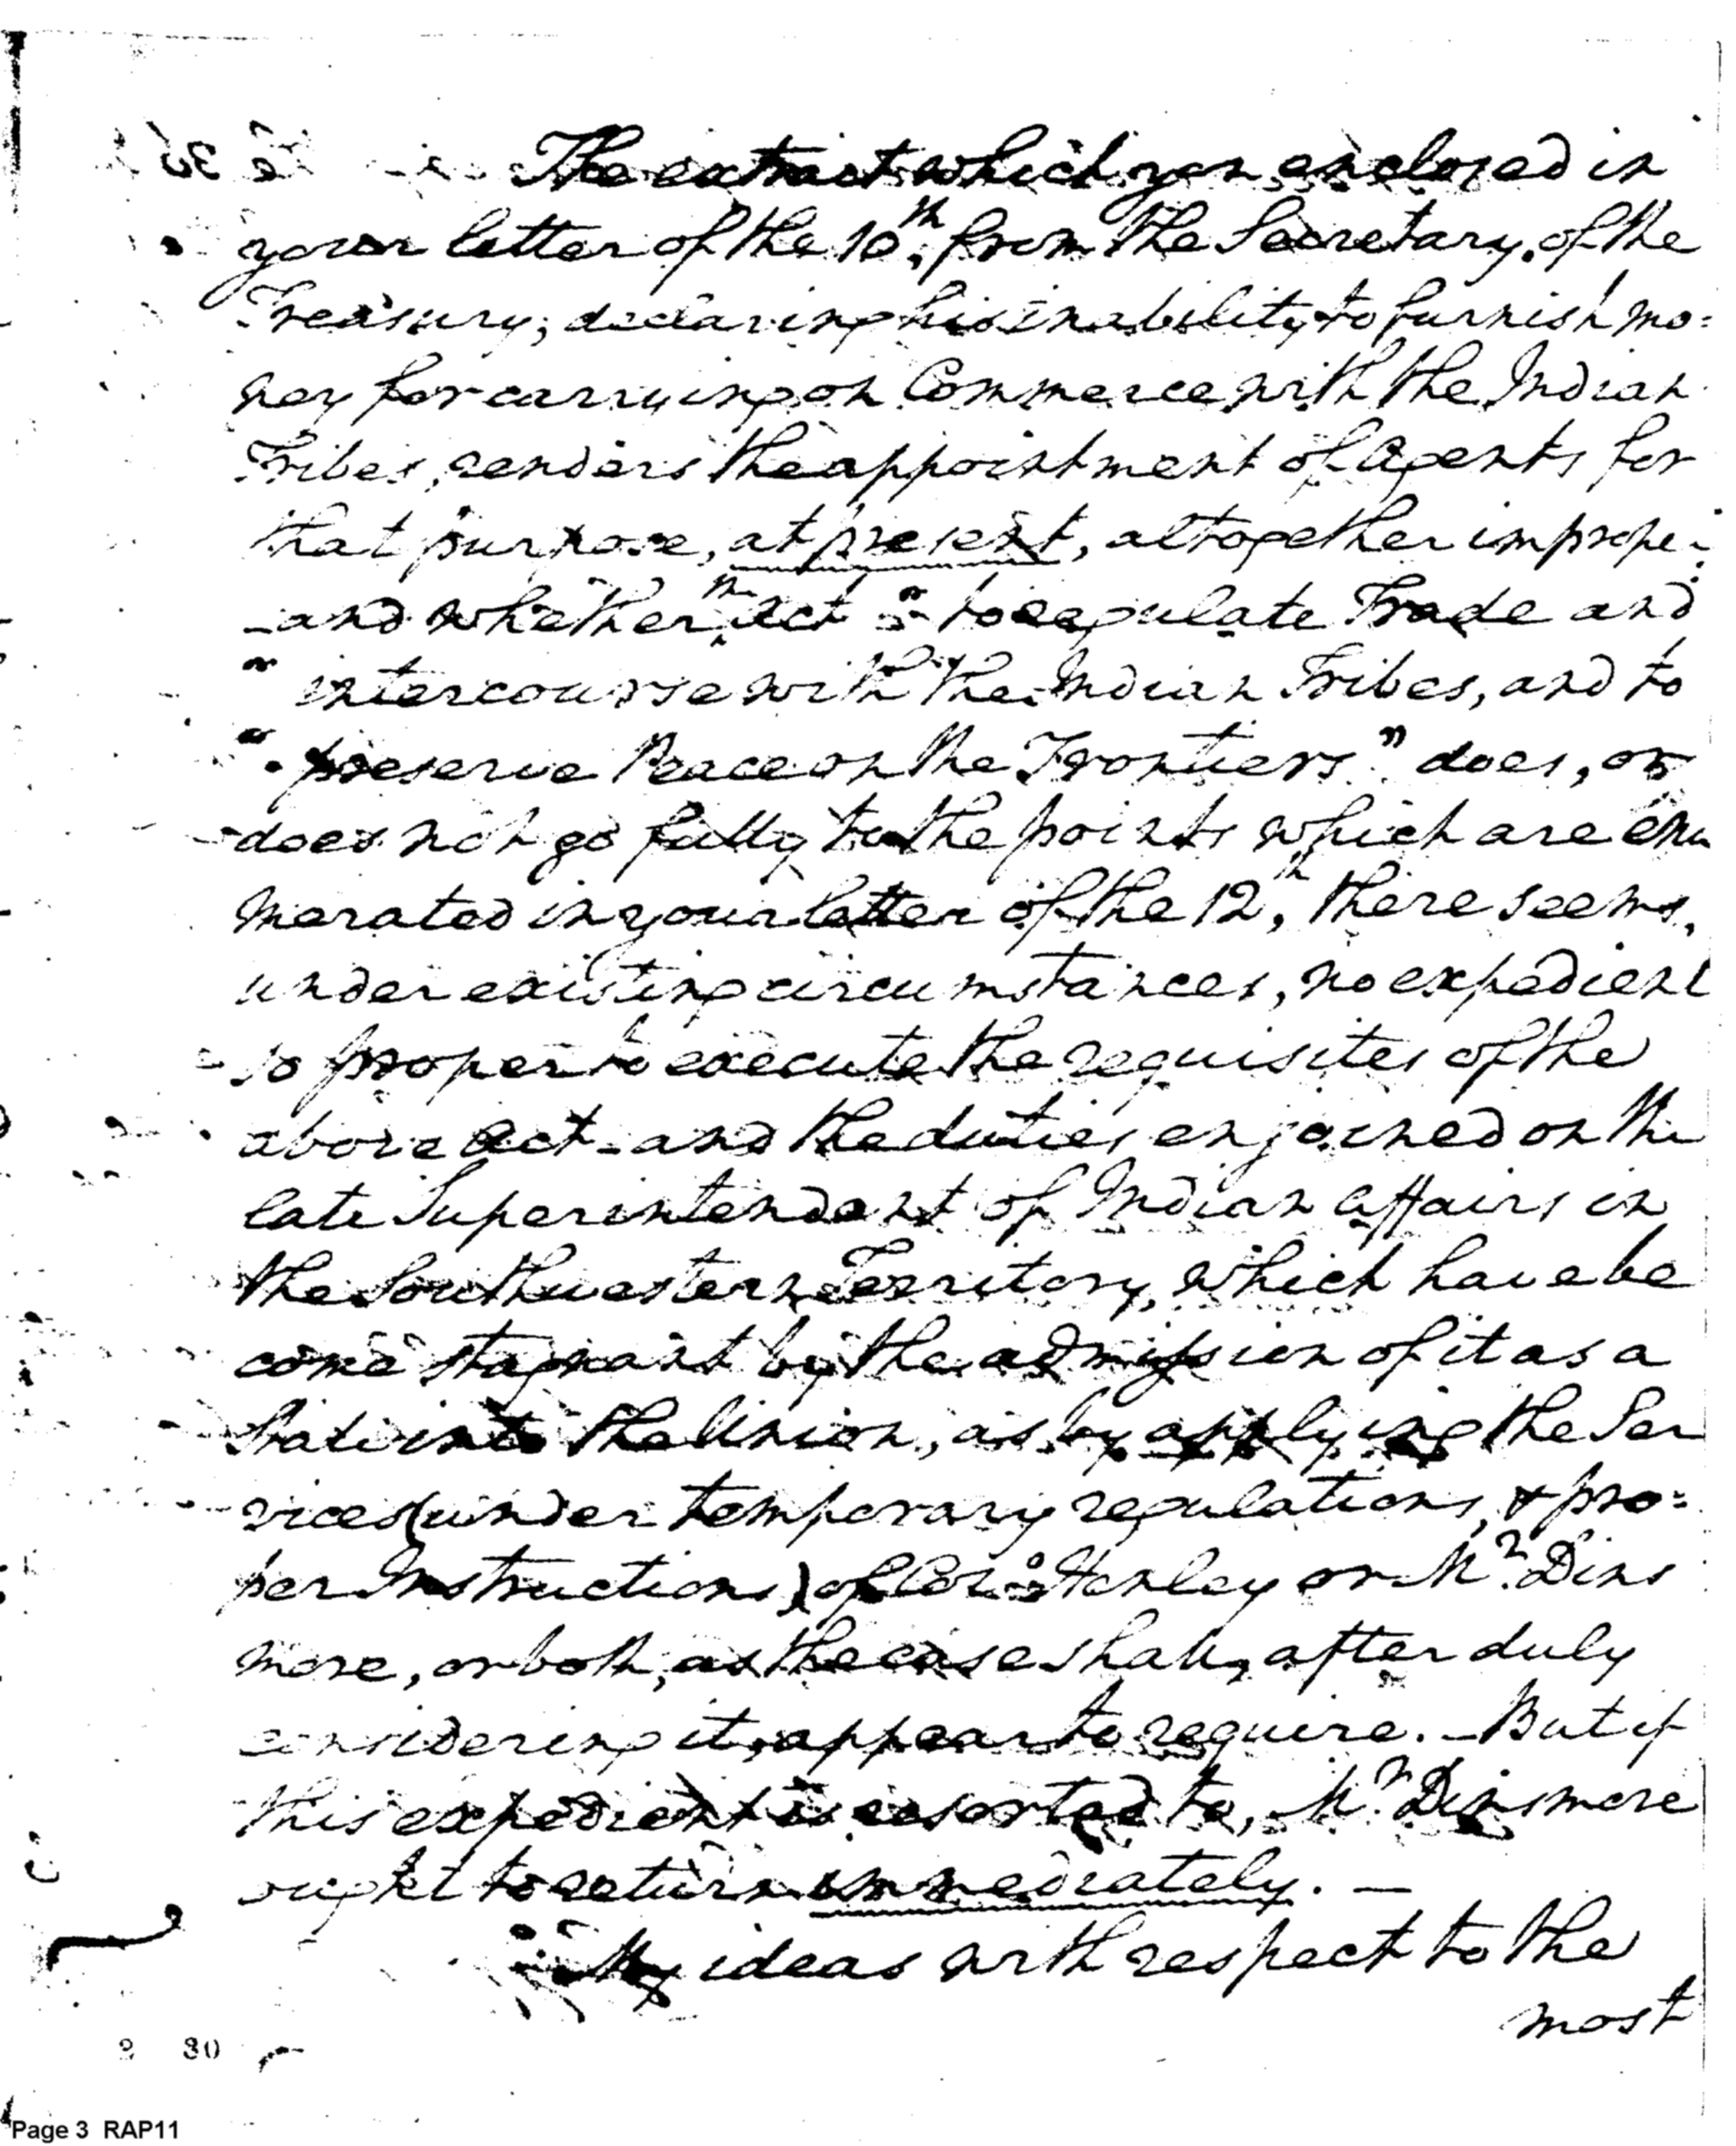 The extract which you enclosed in
your letter of the 10th, from the Secretary, of the
Treasury, declaring his inability to furnish mo=
ney for carrying on Commerce with the Indian
Tribes, renders the appointment of Agents for
that purpose, at present, altogether improper
–and whether th act "to regulate Trade and
" intercourse with the Indian Tribes, and to
" preserve Peace on the Frontiers" does, or
does not go fully to the points which are enu
merated in your letter of the 12th, there seems,
under existing circumstances, no expedient
so proper to execute the requisites of the
above act–and the duties enjoined on the
late Superintendant of Indian Affairs in
the Southwestern Territory, which have be
come stagnant by the admission of it as a
State into the Union, as by applying the Ser
vices (under temporary regulations, & pro=
per Instructions) of Colo. Henley or Mr. Dins
more, or both, as the case shall, after duly
considering it, appear to require. – But if
this expedient is resorted to, Mr. Dinsmore
ought to return immediately. —
My ideas with respect to the
most
30
Page 3 RAP11